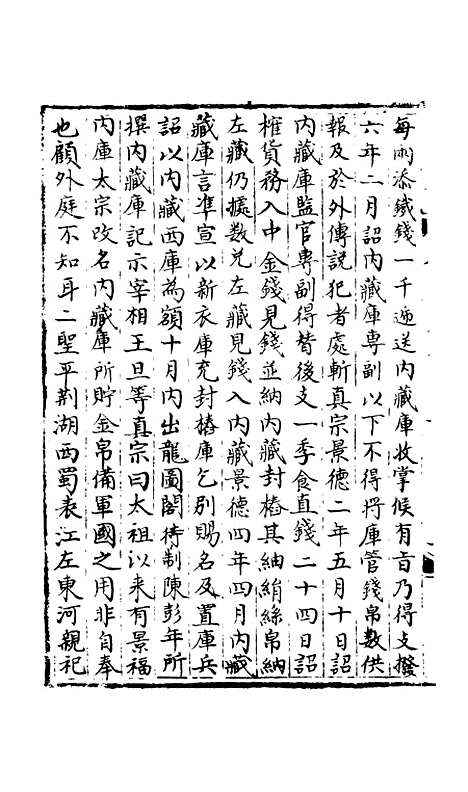 每兩添鐵錢一千逓送内藏庫收掌候有旨乃得支撥
六年二月詔内藏庫専副以下不得將庫管錢帛数供
報及於外傳說犯者處斬真宗景德二年五月十日詔
内藏庫監官専副得替後支一季食直錢二十四日詔
榷貨務入中金錢見錢並納内藏封樁其紬絹絲帛納
左藏仍據数兑左藏見錢入内藏景德四年四月内藏
藏庫言准宣以新衣庫充封樁庫乞別賜名及置庫兵
詔以内藏西庫為額十月内出龍圖閣待制陳彭年所
撰内藏庫記示宰相王旦等真宗曰太祖以来有景福
内庫太宗改名内藏庫所貯金帛備軍國之用非自奉
也顧外庭不知耳二聖平荆湖西蜀表江左東河親祀